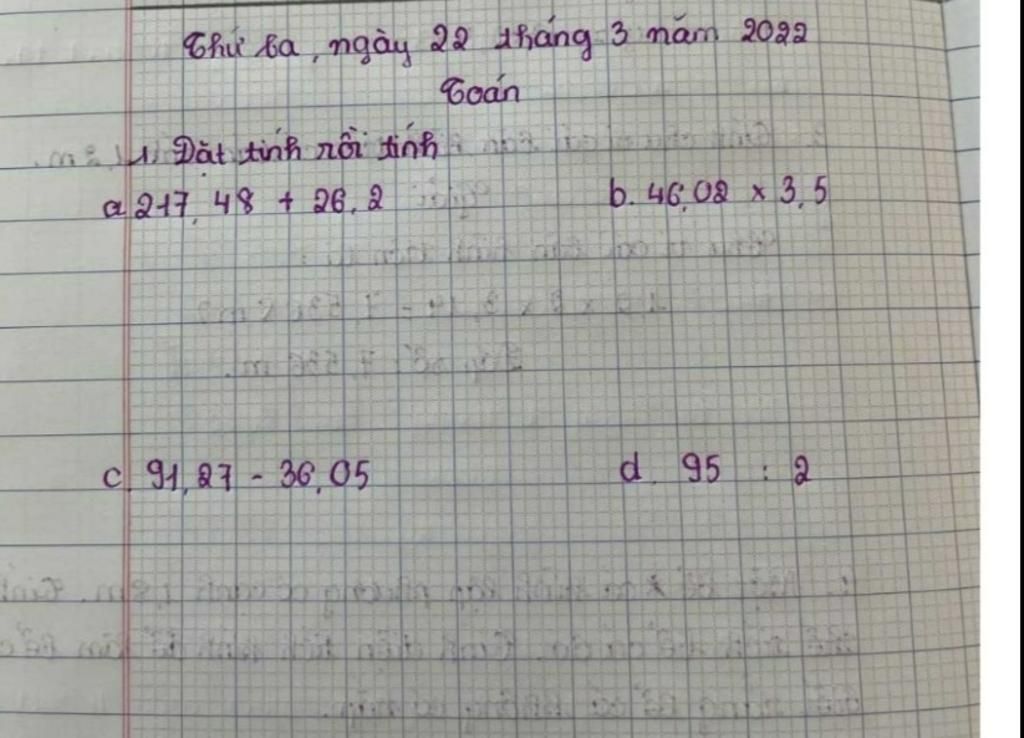 Thứ ba, ngày 22 tháng 3 năm 2022
Toán
1, Đặt tính rồi tính
a, 217,48 + 26,2 b. 46,02 x 3,5
c, 91,27 - 36,05 d. 95 : 2